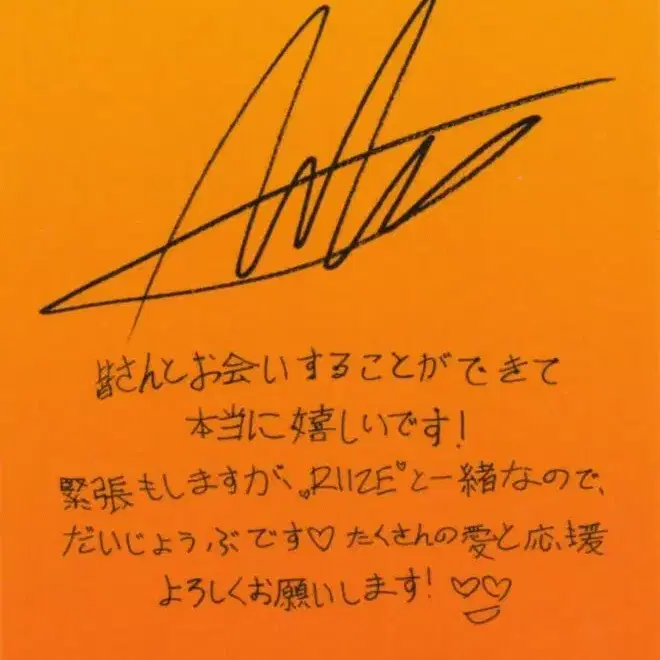 皆さんとお会いすることができて
本当に嬉しいです!
緊張もしますが、"RIIZE"と一緒なので、
だいじょうぶです♡ たくさんの愛と応援
よろしくお願いします! ♡♡